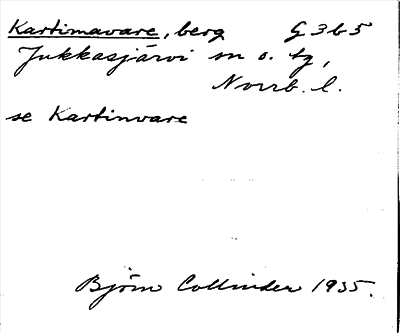 Kartimavare, berg G 3 b 5
Jukkasjärvi sn o. tg,
Norrb. l.
se Kartinvare
Björn Collinder 1935.